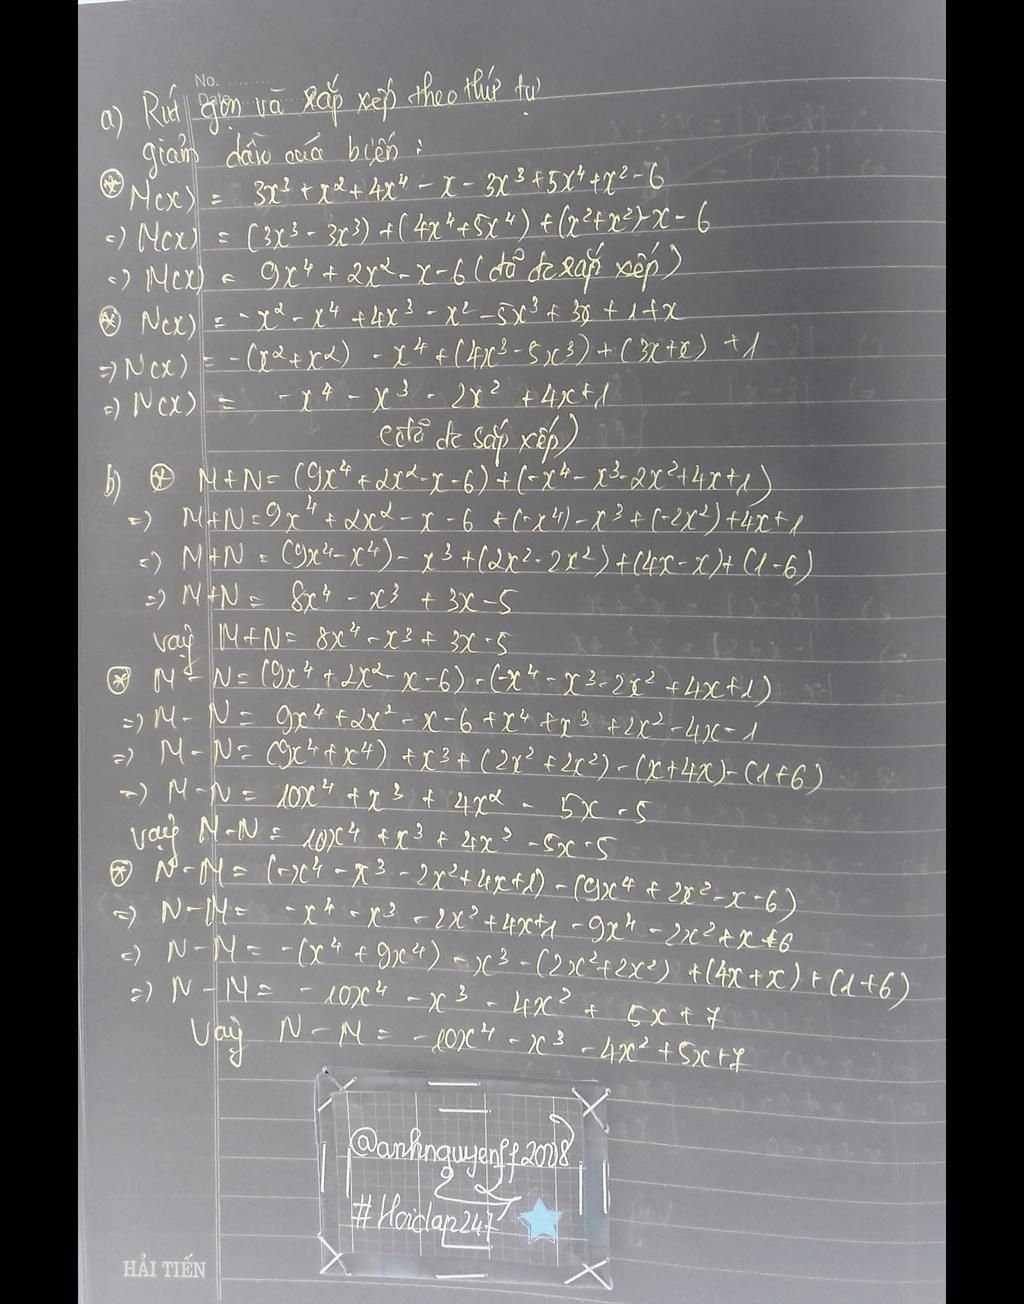 No. ............
a) Rút gọn và sắp xếp theo thứ tự
giảm dần của biến :
⊛ M(x) = 3x³ + x² + 4x⁴ - x - 3x³ + 5x⁴ + x² - 6
=) M(x) = (3x³ - 3x³) + (4x⁴ + 5x⁴) + (x² + x²) - x - 6
=) M(x) = 9x⁴ + 2x² - x - 6 (đã đc sắp xếp)
⊛ N(x) = -x² - x⁴ + 4x³ - x² - 5x³ + 3x + 1 + x
=) N(x) = -(x² + x²) - x⁴ + (4x³ - 5x³) + (3x + x) + 1
=) N(x) = -x⁴ - x³ - 2x² + 4x + 1
(đã đc sắp xếp)
b) ⊛ M + N = (9x⁴ + 2x² - x - 6) + (-x⁴ - x³ - 2x² + 4x + 1)
=) M + N = 9x⁴ + 2x² - x - 6 + (-x⁴) - x³ + (-2x²) + 4x + 1
=) M + N = (9x⁴ - x⁴) - x³ + (2x² - 2x²) + (4x - x) + (1 - 6)
=) M + N = 8x⁴ - x³ + 3x - 5
vậy M + N = 8x⁴ - x³ + 3x - 5
⊛ M - N = (9x⁴ + 2x² - x - 6) - (-x⁴ - x³ - 2x² + 4x + 1)
=) M - N = 9x⁴ + 2x² - x - 6 + x⁴ + x³ + 2x² - 4x - 1
=) M - N = (9x⁴ + x⁴) + x³ + (2x² + 2x²) - (x + 4x) - (1 + 6)
=) M - N = 10x⁴ + x³ + 4x² - 5x - 5
vậy M - N = 10x⁴ + x³ + 4x² - 5x - 5
⊛ N - M = (-x⁴ - x³ - 2x² + 4x + 1) - (9x⁴ + 2x² - x - 6)
=) N - M = -x⁴ - x³ - 2x² + 4x + 1 - 9x⁴ - 2x² + x + 6
=) N - M = -(x⁴ + 9x⁴) - x³ - (2x² + 2x²) + (4x + x) + (1 + 6)
=) N - M = -10x⁴ - x³ - 4x² + 5x + 7
Vậy N - M = -10x⁴ - x³ - 4x² + 5x + 7
@anhnguyenff2008
#Hoidap247
HẢI TIẾN